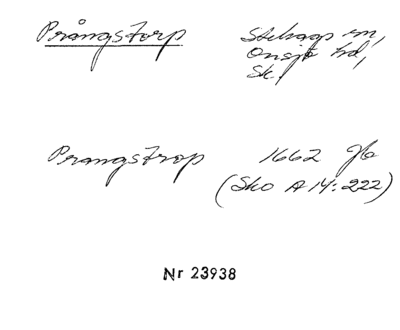 Prångstorp Stehags sn,
Onsjö hd,
Sk.
Prangstrop 1662 Jb
(Sko A 14:222)
Nr 23938